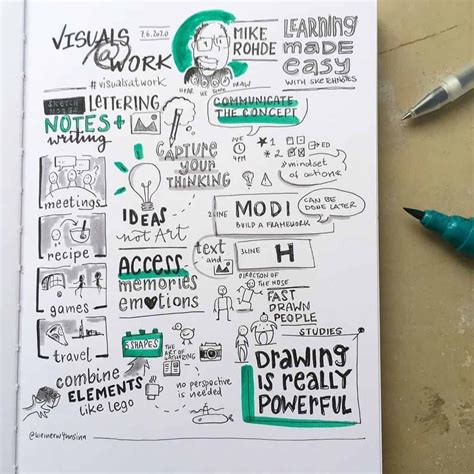 VISUALS
@
WORK
#visualsatwork
7.6.2020
MIKE
ROHDE
HEAR
DRAW
LEARNING
made
easy
WITH SKETCHNOTES
LETTERING
NOTES+
writing
meetings
recipe
games
travel
combine
ELEMENTS
like Lego
CAPTURE
YOUR
THINKING
IDEAS
not Art
ACCESS
memories
emotions
5 SHAPES
THE
ART OF
no perspective
is needed
COMMUNICATE
THE CONCEPT
DUE
4PM
*1
*2
*3
*mindset
of actions
2 LINE
MODI
BUILD A FRAMEWORK
CAN BE
DONE LATER
text
and
3 LINE
H
DIRECTION OF
THE NOSE
FAST
DRAWN
PEOPLE
STUDIES
DRAWING
IS REALLY
POWERFUL